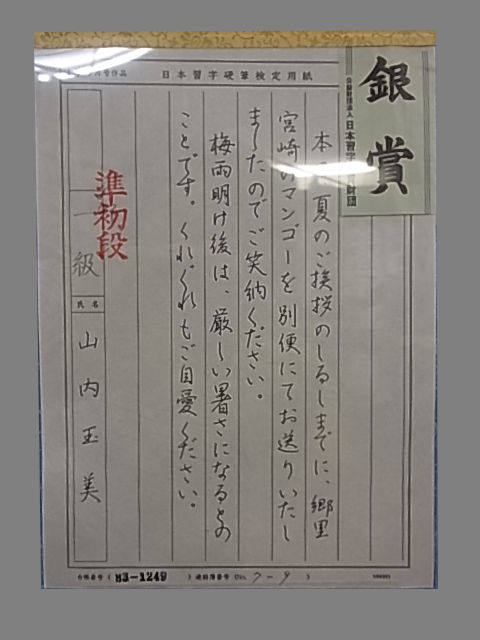 日本習字硬筆検定用紙
銀賞
公益財団法人 日本習字
財団
本
夏のご挨拶のしるしまでに、郷里
宮崎のマンゴーを別便にてお送りいたし
ましたのでご笑納ください。
梅雨明け後は、厳しい暑さになるとの
ことです。くれぐれもご自愛ください。
準初段
一級
氏名
山内玉美
合格番号（H3-1249）連絡簿番号（No. 7-9）